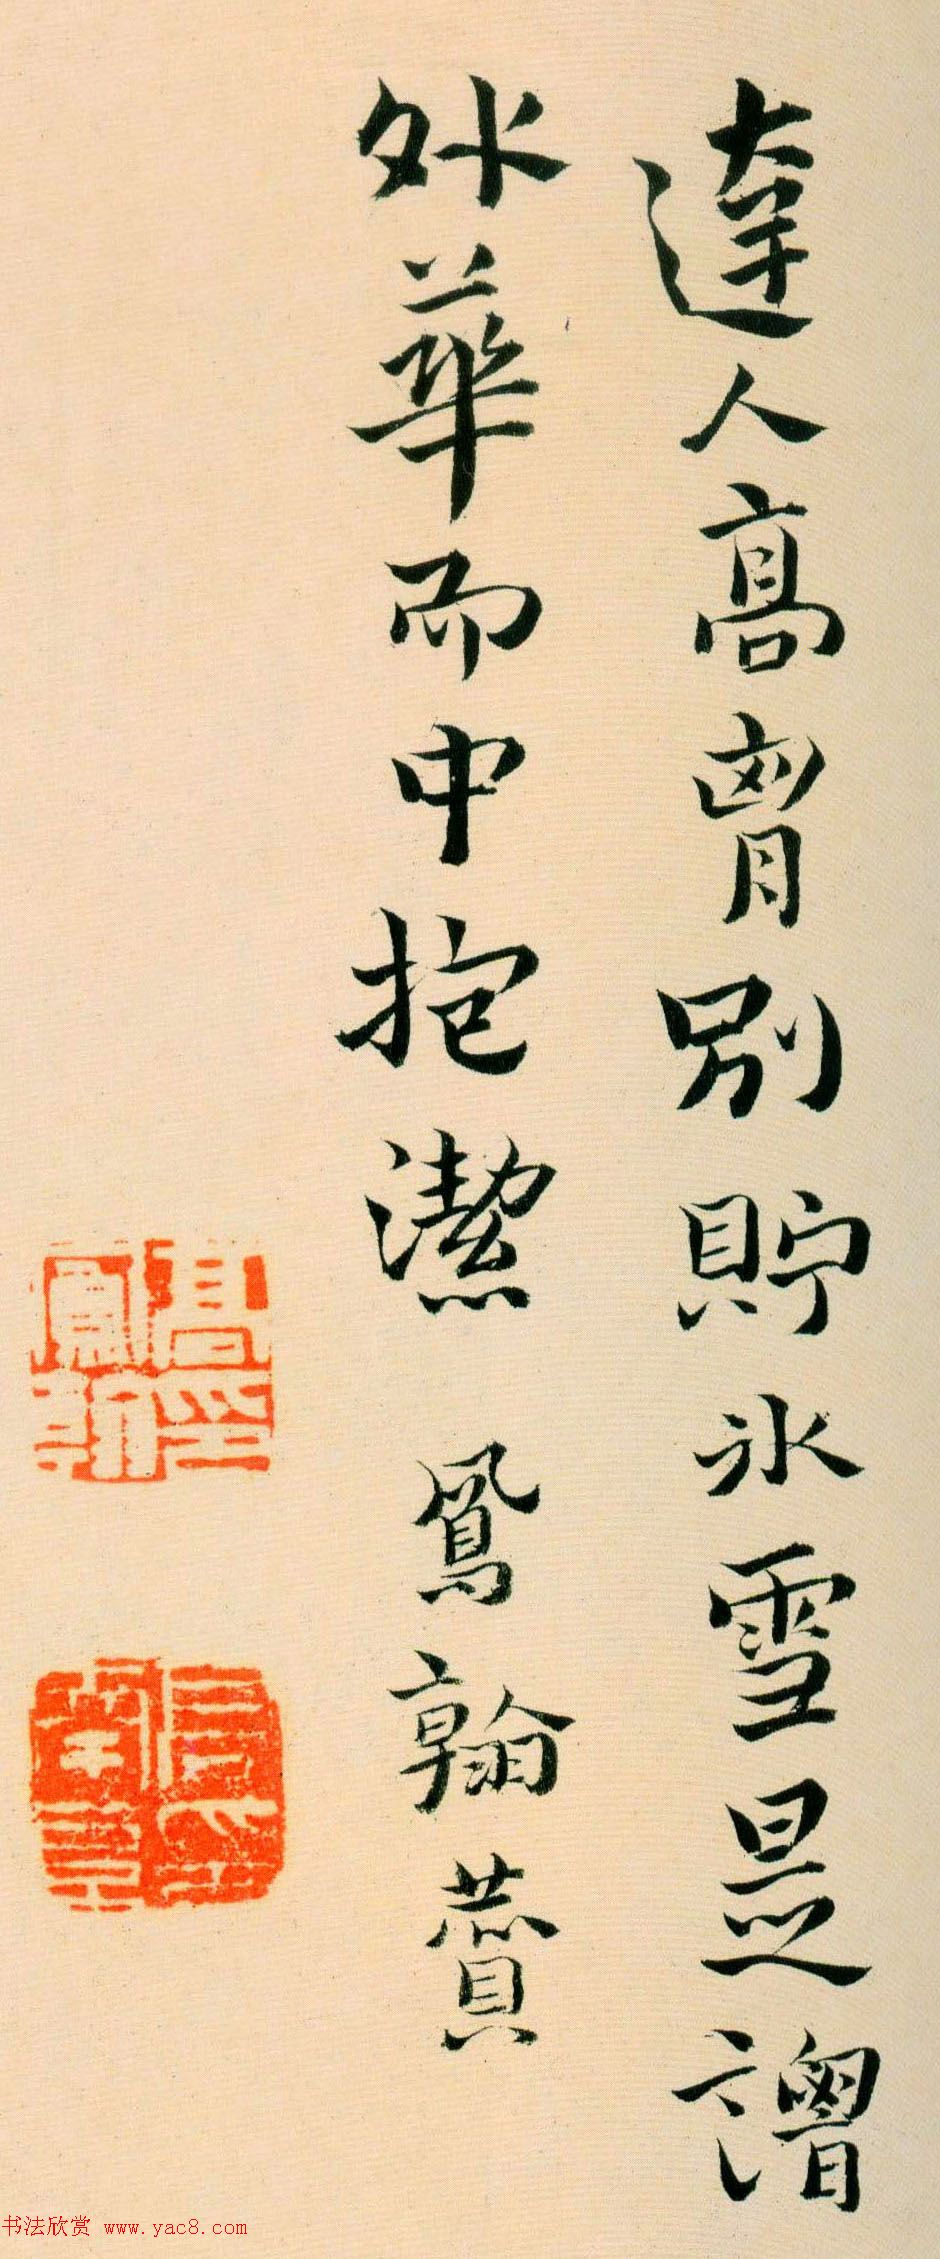 達人高胷別貯冰雪是謂
外華而中抱潔 鳳翰贊
高鳳翰印
书法欣赏 www.yac8.com